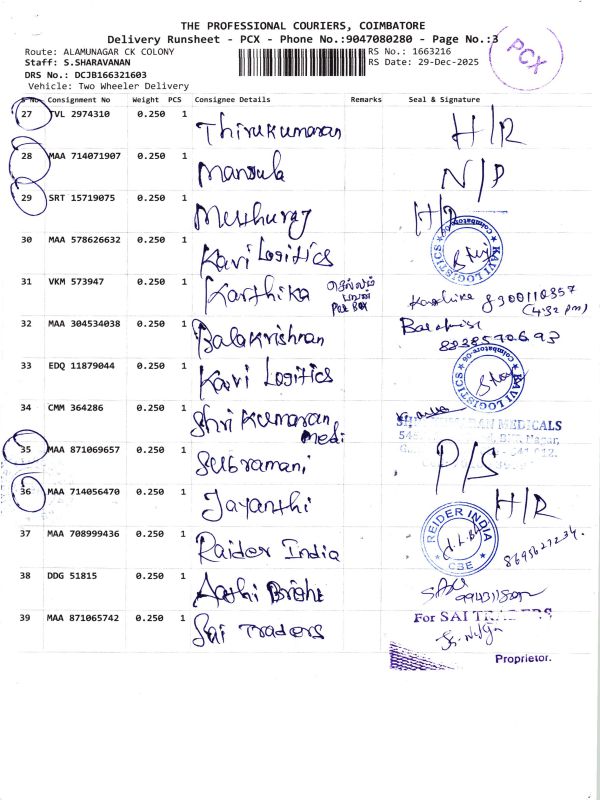 THE PROFESSIONAL COURIERS, COIMBATORE
Delivery Runsheet - PCX - Phone No.:9047080280 - Page No.:3
PCX
Route: ALAMUNAGAR CK COLONY
RS No.: 1663216
Staff: S.SHARAVANAN
RS Date: 29-Dec-2025
DRS No.: DCJB166321603
Vehicle: Two Wheeler Delivery
S No Consignment No Weight PCS Consignee Details Remarks Seal & Signature
27 TVL 2974310 0.250 1 Thirukumaran H/R
28 MAA 714071907 0.250 1 Manjula N/P
29 SRT 15719075 0.250 1 Muthuraj H/R
30 MAA 578626632 0.250 1 Kavi Logitics
KAVI LOGISTICS Coimbatore-06
31 VKM 573947 0.250 1 Karthika Karthika 8300110357
(4:32 pm)
32 MAA 304534038 0.250 1 Balakrishnan
33 EDQ 11879044 0.250 1 Kavi Logitics
KAVI LOGISTICS Coimbatore-06
34 CMM 364286 0.250 1 Shri Kumaran
Medi
MEDICALS
Nagar,
35 MAA 871069657 0.250 1 Subramani P/S
36 MAA 714056470 0.250 1 Jayanthi H/R
37 MAA 708999436 0.250 1 Raider India
REIDER INDIA CBE
8695627234
38 DDG 51815 0.250 1
39 MAA 871065742 0.250 1 Sai Traders
For SAI TRADERS
Proprietor.